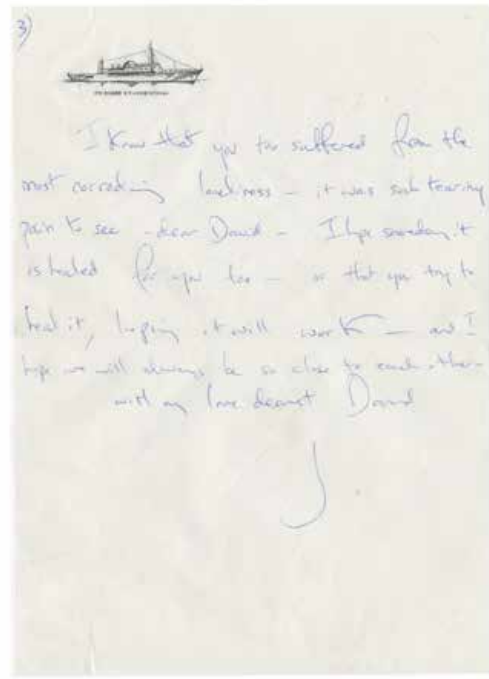 3)
I know that you too suffered from the
most corroding loneliness – it was such tearing
pain to see – dear David – I hope someday it
is healed for you too – or that you try to
heal it, hoping it will work – and I
hope we will always be so close to each other –
with my love dearest David
J.